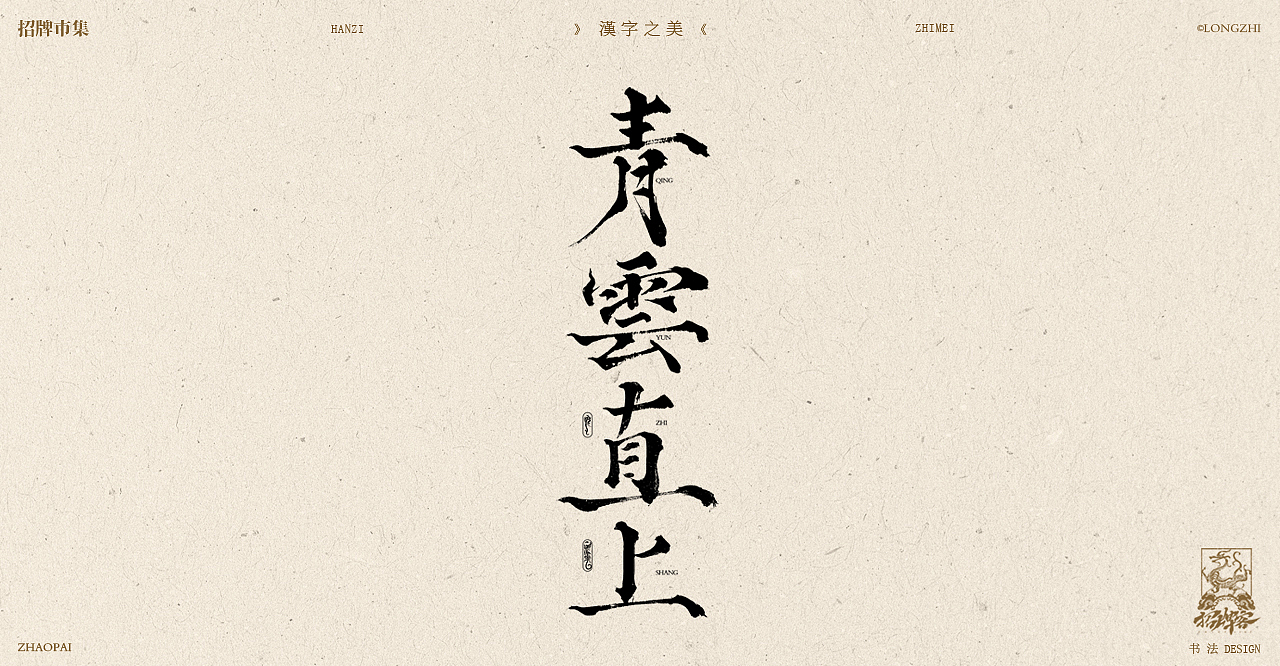 招牌市集
HANZI
》 漢字之美 《
ZHIMEI
©LONGZHI
青
QING
雲
YUN
直
ZHI
上
SHANG
招牌客
ZHAOPAI
书 法 DESIGN